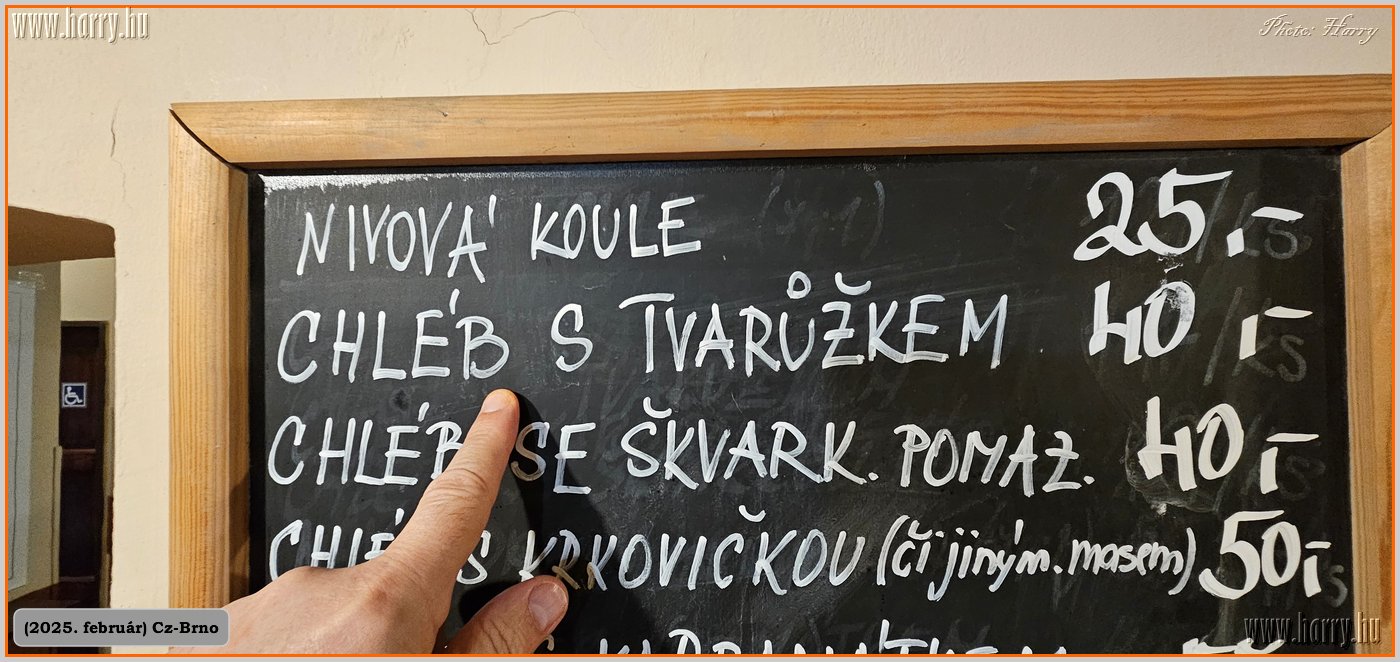 www.harry.hu
Photo: Harry
NIVOVÁ KOULE 25.-
CHLÉB S TVARŮŽKEM 40.-
CHLÉB SE ŠKVARK. POMAZ. 40.-
CHLÉB S KRKOVIČKOU (či jiným. masem) 50.-
(2025. február) Cz-Brno
www.harry.hu